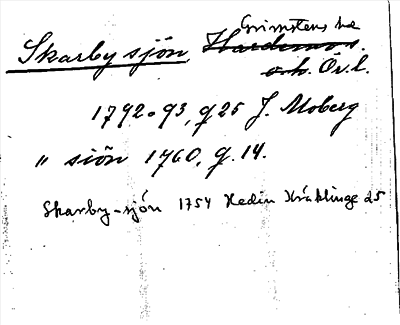 Grimstens hd
Skarby sjön, Hardemo s.
o.h. Ör.l.
1792-93, g 25 J. Moberg
" sjön 1760, g. 14.
Skarby-sjön 1754 Hedin Kräklinge 25